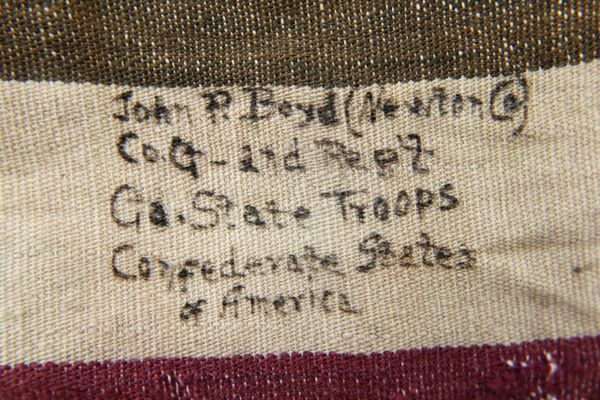 John R Boyd (Newton Co)
Co. G - 2nd Reg't
Ga. State Troops
Confederate States
of America